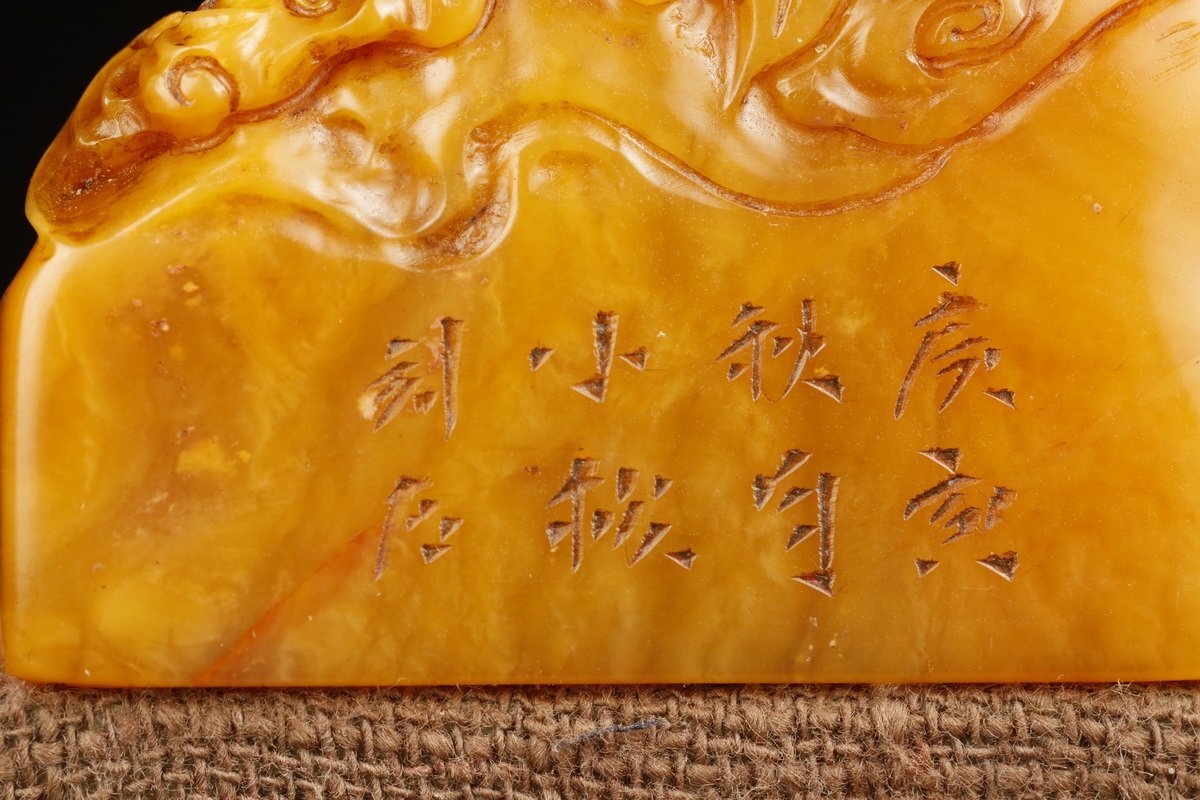 庚寅
秋月
小松
刻石